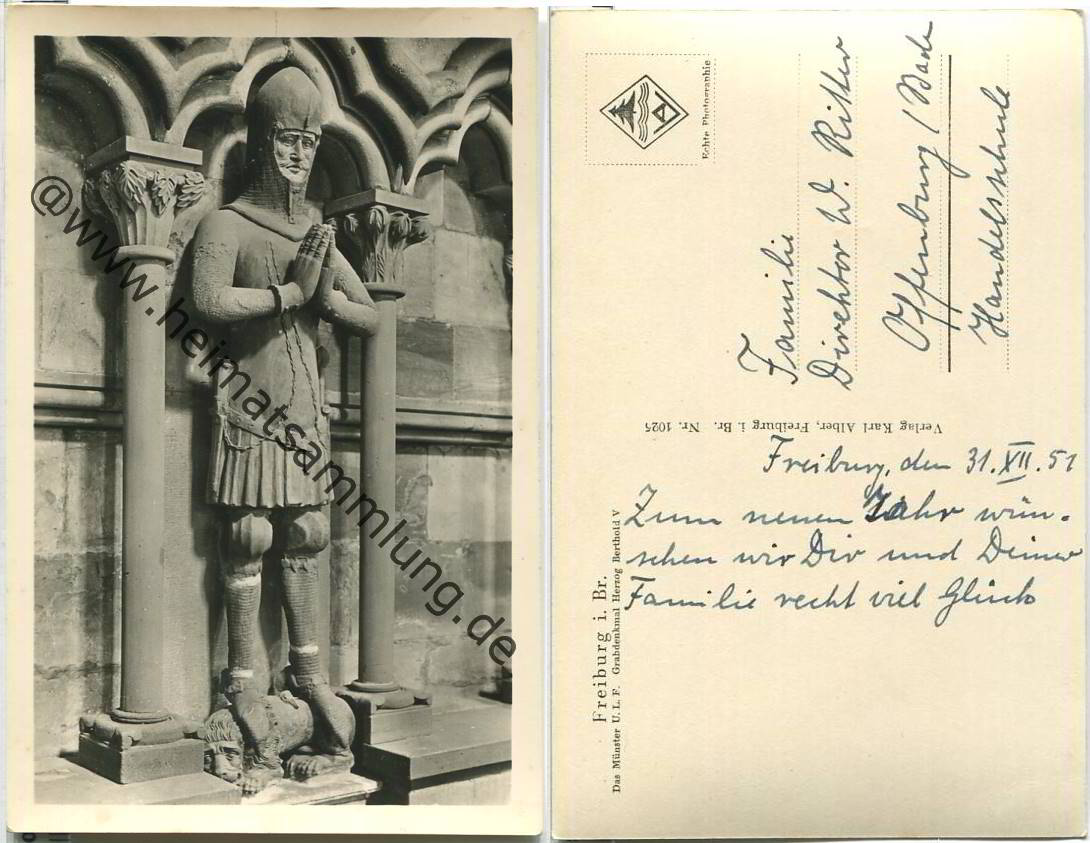 @www.heimatsammlung.de
Echte Photographie
Familie
Direktor W. Ritter
Offenburg / Bade
Handelsschule
Verlag Karl Alber, Freiburg i. Br. Nr. 1025
Freiburg, den 31. XII. 51
Zum neuen Jahr wün-
schen wir Dir und Deiner
Familie recht viel Glück
Freiburg i. Br.
Das Münster U. L. F. Grabdenkmal Herzog Berthold V